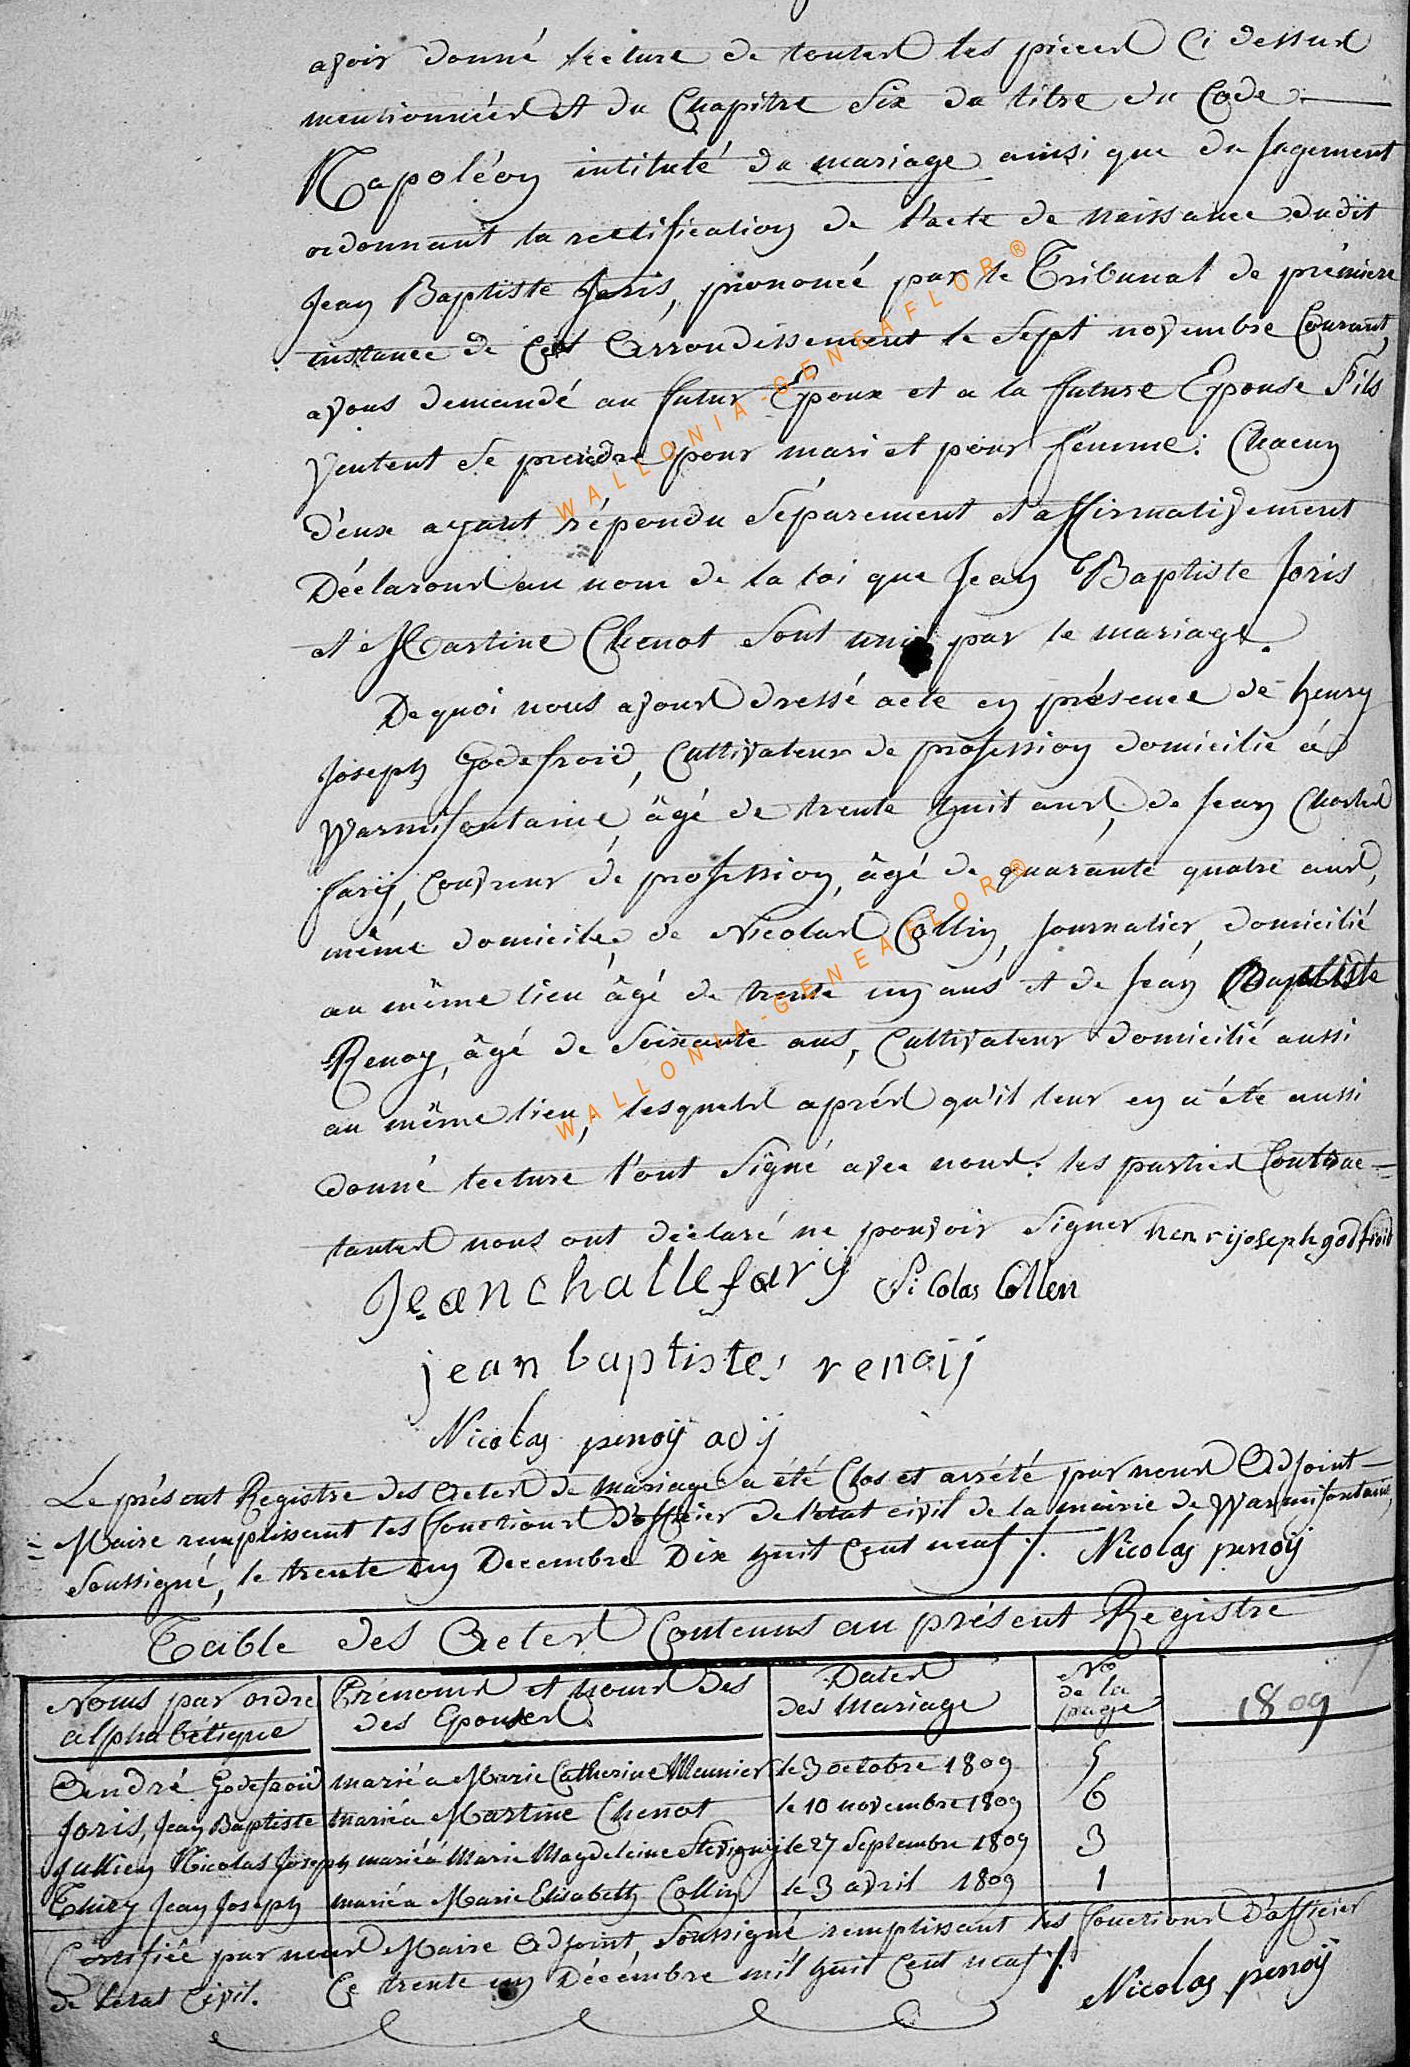 avoir donné lecture de toutes les pièces ci dessus
mentionnées et du Chapitre Six du titre du Code
Napoléon intitulé du mariage ainsi que du Jugement
ordonnant la rectification de l'acte de naissance dudit
Jean Baptiste Joris, prononcé par le Tribunal de première
instance de cet arrondissement le Sept novembre Courant,
avons demandé au futur Epoux et a la future Epouse s'ils
veulent se prendre pour mari et pour femme: Chacun
d'eux ayant répondu séparement et affirmativement
Déclarons au nom de la loi que Jean Baptiste Joris
et Martine Chenot sont unis par le mariage.
De quoi nous avons dressé acte en présence de henry
Joseph Godefroid, Cultivateur de profession domicilié à
Warmifontaine, âgé de trente huit ans, de Jean Charles
farÿ, Couvreur de profession, âgé de quarante quatre ans,
même domicile, de Nicolas Collin, Journalier, domicilié
au même lieu âgé de trente un ans et de Jean Baptiste
Renoy, âgé de Soixante ans, Cultivateur domicilié aussi
au même lieu, lesquels après qu'il leur en a été aussi
donné lecture l'ont Signé avec nous. les parties Contrac=
tantes nous ont déclaré ne pouvoir Signer henrijoseph godfroid
Jean challe fary Nicolas Collen
jean baptiste renoij
Nicolas penoÿ adj
Le présent Registre des Actes de mariage a été Clos et arrêté par nous Adjoint-
= Maire remplissant les fonctions d'officier de l'état civil de la mairie de Warmifontaine,
Soussigné, le trente un Decembre Dix huit Cent neuf ./. Nicolas penoÿ
Table des Actes Contenus au présent Registre
Noms par ordre alphabétique
Prénoms et noms des des Epouses
Dates des Mariage
No de la page
1809
André Godefroid mariéa Marie Catherine Meunier le 3 octobre 1809 5
Joris, Jean Baptiste mariéa Martine Chenot le 10 novembre 1809 6
Jullien Nicolas Joseph mariéà Marie Magdeleine Stevigny le 27 Septembre 1809 3
Thiry Jean Joseph mariéa Marie Elisabeth Collin le 3 avril 1809 1
Certifiée par nous Maire Adjoint, Soussigné remplissant les fonctions d'officier
de l'etat Civil. Ce trente un Décémbre mil huit Cent neuf ./. Nicolas penoÿ
WALLONIA-GENEAFLOR®
WALLONIA-GENEAFLOR®